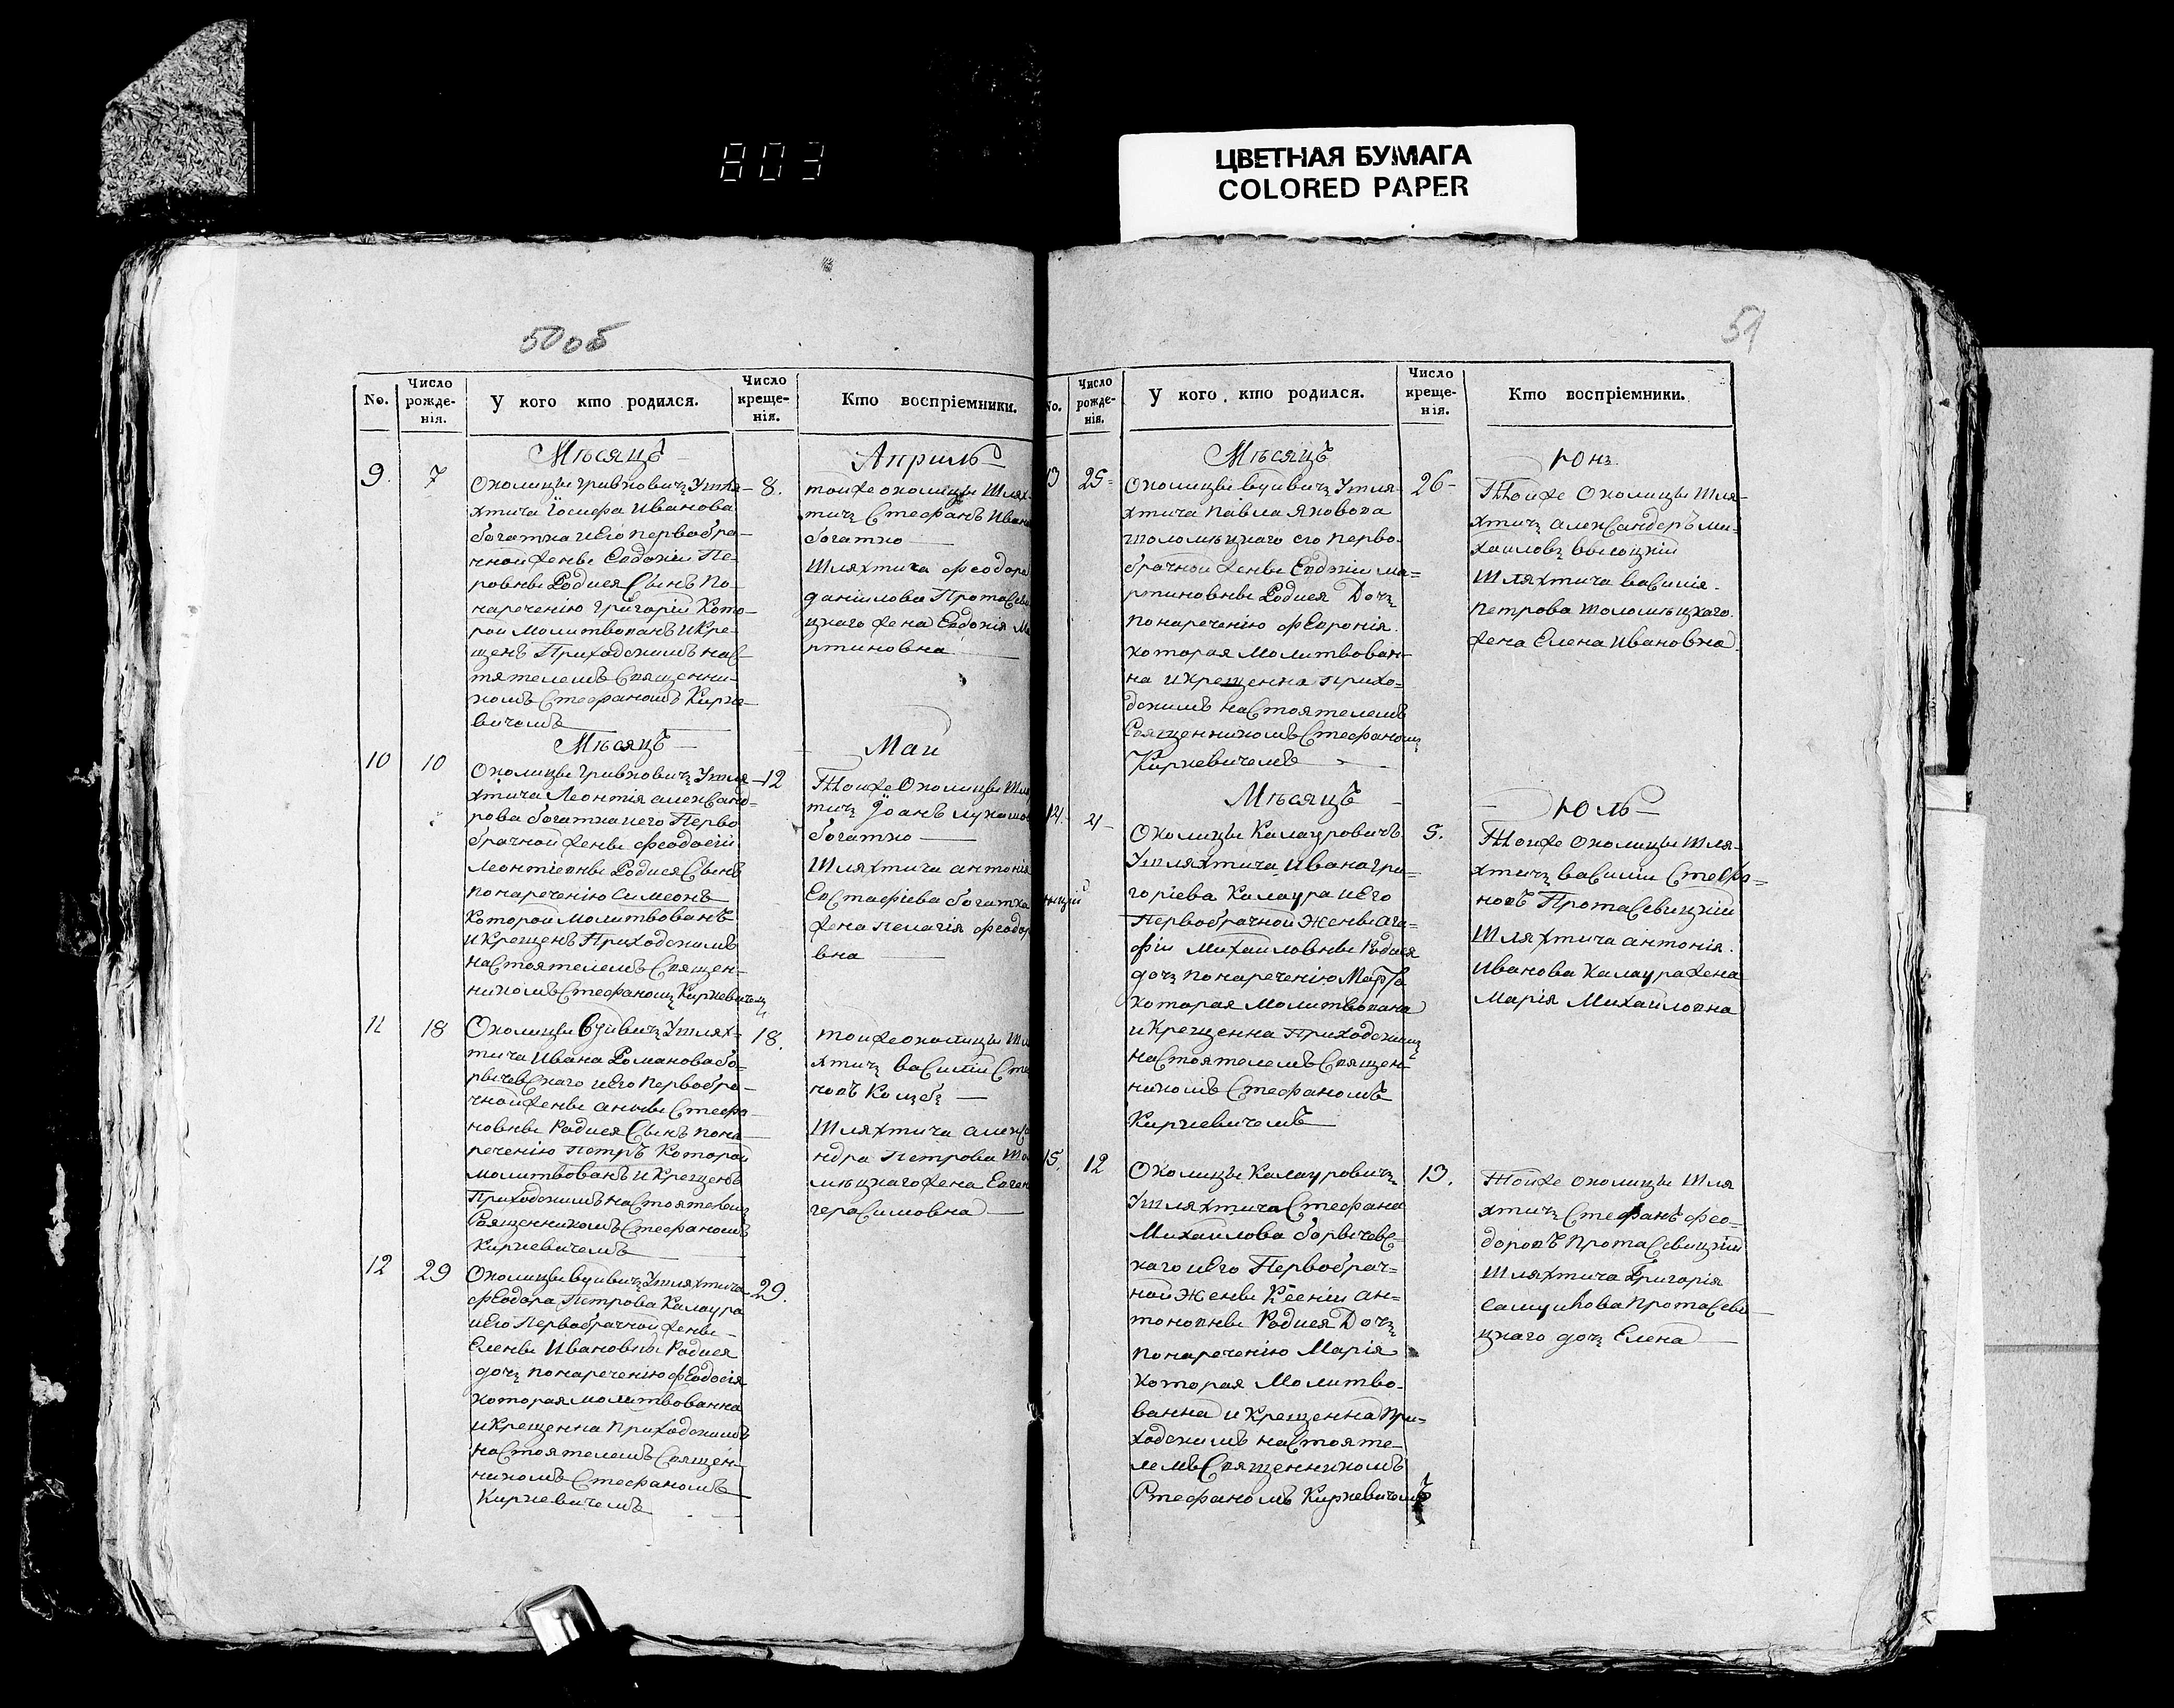 803
ЦВЕТНАЯ БУМАГА
COLORED PAPER
50 об
No.
Число рожде-нія.
У кого кто родился.
Число креще-нія.
Кто воспріемники.
Мѣсяцъ
Априль
9.
7
8.
Околицы Гривковичъ Ушля-
хтича Іосифа Иванова
богатка и Его первобра-
чной жены Евдокіи Пе-
ровны Родися Сынъ По
нареченію григорій Кото-
рой Молитвованъ и Кре-
щенъ Приходскимъ наС-
тятелемъ Священни-
комъ Стефаномъ Кирке-
вичемъ
тойже околицы Шлях-
тичъ Стефанъ Ивано
богатко
Шляхтича феодора
даніилова ПротаСеви
цкаго жена Евдокія Ма
ртиновна
Мѣсяцъ
Май
10
10
12
Околицы Гривковичъ Ушля-
хтича Леонтія алекСанд-
рова богатка и его Перво
брачной жены феодосіи
Леонтіевны Родися Сынъ
понареченію Симеонъ
Которой молитвованъ
и Крещенъ Приходскимъ
наСтоятелемъ Священ-
никомъ Стефаномъ Киркевичемъ
Тойже Околицы Шля
тичъ Іоанъ лукашов
богатко
Шляхтича антонія
ЕвСтафіева богатка
жена пелагія феодор
вна
11
18
18.
Околицы Вуйвичъ Ушлях-
тича Ивана Романова бо-
рычевСкаго и Его первобра-
чной жены анны Стефа-
новны Родися Сынъ пона-
реченію петръ Которой
молитвованъ и Крещенъ
Приходскимъ наСтоятелемъ
Священникомъ Стефаномъ
Киркевичемъ
тойже околицы Шля
хтичъ ваСилій Сте
новъ Колбъ
Шляхтича алекСа
ндра Петрова Шо
мыцкаго жена Евген
гераСимовна
12
29
29.
Околицы вуйвичъ Ушляхтича
фЕодора Петрова Калаура
и Его Первобрачной жены
Елены Ивановны Родися
дочъ понареченію фЕодосія
которая молитвованна
и Крещенна Приходскимъ
наСтоятелемъ Священ-
никомъ Стефаномъ
Киркевичемъ
51
No.
Число рожде-нія.
У кого кто родился.
Число креще-нія.
Кто воспріемники.
Мѣсяцъ
Юнъ
13
25
26
Околицы вуйвичъ Ушля-
хтича павла Яковова
шоломыцкаго его перво-
брачной жены Евдокіи ма-
ртиновны Родися Дочъ
понареченію фЕвронія
которая Молитвован-
на и крещенна прихо-
дскимъ наСтоятелемъ
Священникомъ Стефаномъ
Киркевичемъ
Тойже Околицы Шля-
хтичъ алекСандеръ ми-
хаиловъ высоцкій
Шляхтича ваСилія
петрова шоломыцкаго
жена Елена Ивановна
Мѣсяцъ
Юль
14.
4
5.
Околицы Калауровичъ
Ушляхтича Ивана гри-
горіева Калаура и Его
Первобрачной Жены ага-
фіи Михаиловны Родися
дочъ понареченію Марфа
которая Молитвована
и Крещенна Приходскимъ
наСтоятелемъ Священ-
никомъ Стефаномъ
Киркевичемъ
Тойже Околицы Шля-
хтичъ ваСилій Стефа-
новъ ПротаСевицкій
Шляхтича антонія
Иванова Калаура жена
Марія Михаиловна
15.
12
13.
Околицы Калауровичъ
Ушляхтича Стефана
Михаилова борычевС-
каго и Его Первобрач-
ной Жены Ксеніи ан-
тоновны Родися Дочъ
понареченію Марія
которая Молитво-
ванна и Крещенна При-
ходскимъ наСтояте-
лемъ Священникомъ
Стефаномъ Киркевичемъ
Тойже околицы Шля
хтичъ Стефанъ фео-
доровъ протаСевицкій
Шляхтича Григорія
самуилова протаСеви-
цкаго дочъ Елена